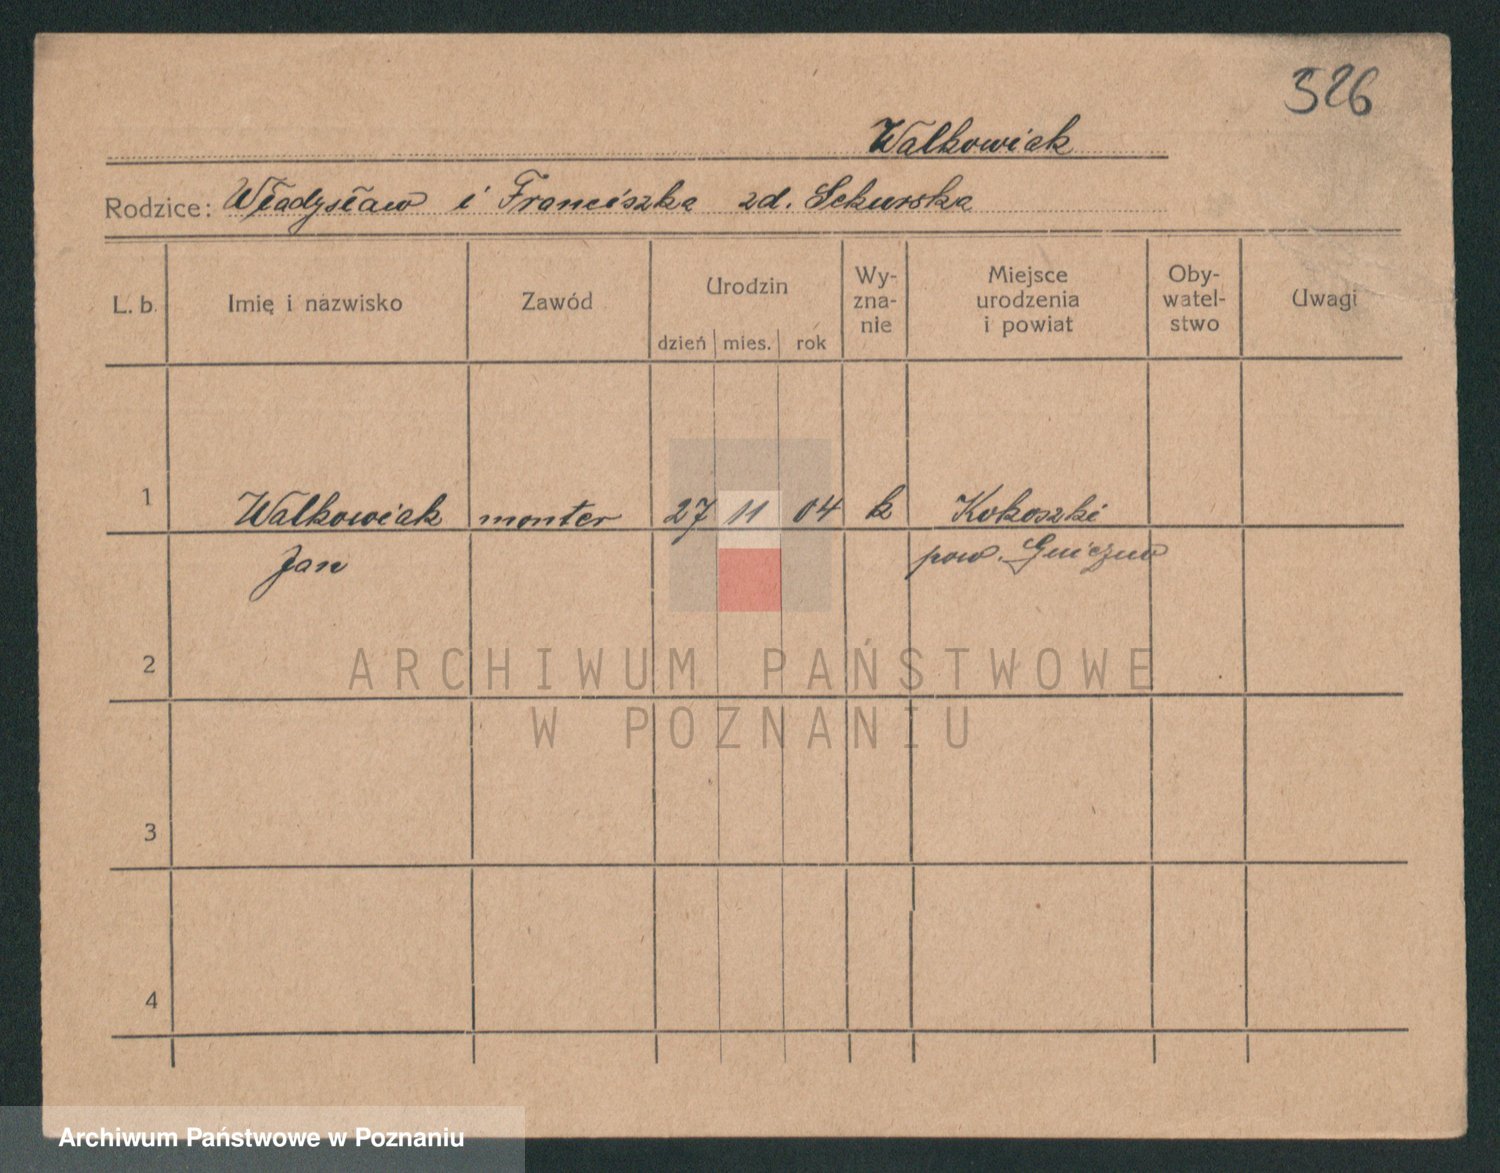 526
Walkowiak
Rodzice: Władysław i Franciszka zd. Sekurska
L. b. Imię i nazwisko Zawód Urodzin Wy-zna-nie Miejsce urodzenia i powiat Oby-watel-stwo Uwagi
dzień mies. rok
1 Walkowiak monter 27 11 04 k Kokoszki
Jan pow. Gniezno
2
ARCHIWUM PAŃSTWOWE
W POZNANIU
3
4
Archiwum Państwowe w Poznaniu